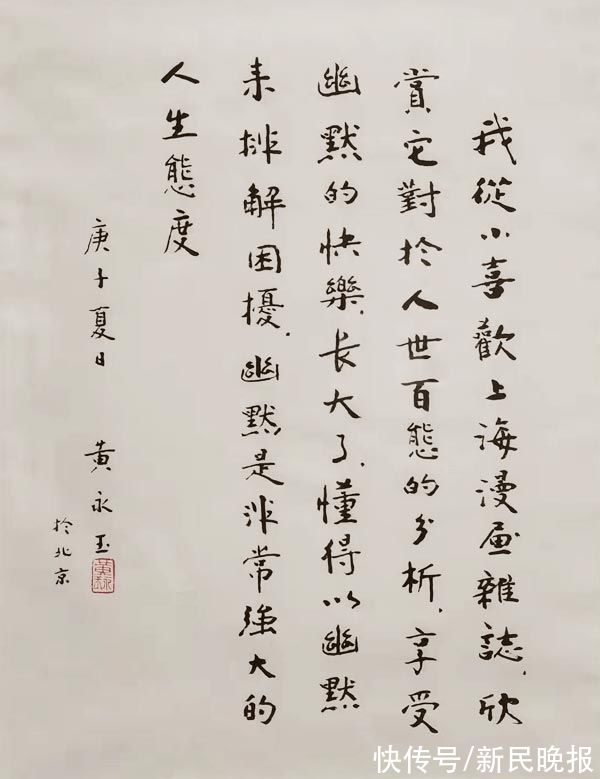 我從小喜歡上海漫画雜誌，欣
賞它對於人世百態的分析，享受
幽默的快樂，長大了，懂得以幽默
来排解困擾，幽默是非常強大的
人生態度
庚子夏日 黄永玉
於北京
快传号/新民晚报